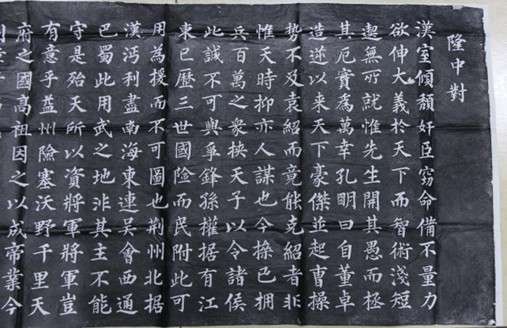 隆中對
漢室傾頹奸臣竊命備不量力
欲伸大義於天下而智術淺短
無所就惟先生開其愚而極
其厄實為萬幸孔明曰自董卓
造逆以來天下豪傑並起曹操
勢不及袁紹而竟能克紹者非
惟天時抑亦人謀也今操已擁
兵百萬之衆挾天子以令諸侯
此誠不可與爭鋒孫權據有江
東已歷三世國險而民附此可
用為援而不可圖也荊州北據
漢沔利盡南海東連吳會西通
巴蜀此用武之地非其主不能
守是殆天所以資將軍將軍豈
有意乎益州險塞沃野千里天
府之國高祖因之以成帝業今